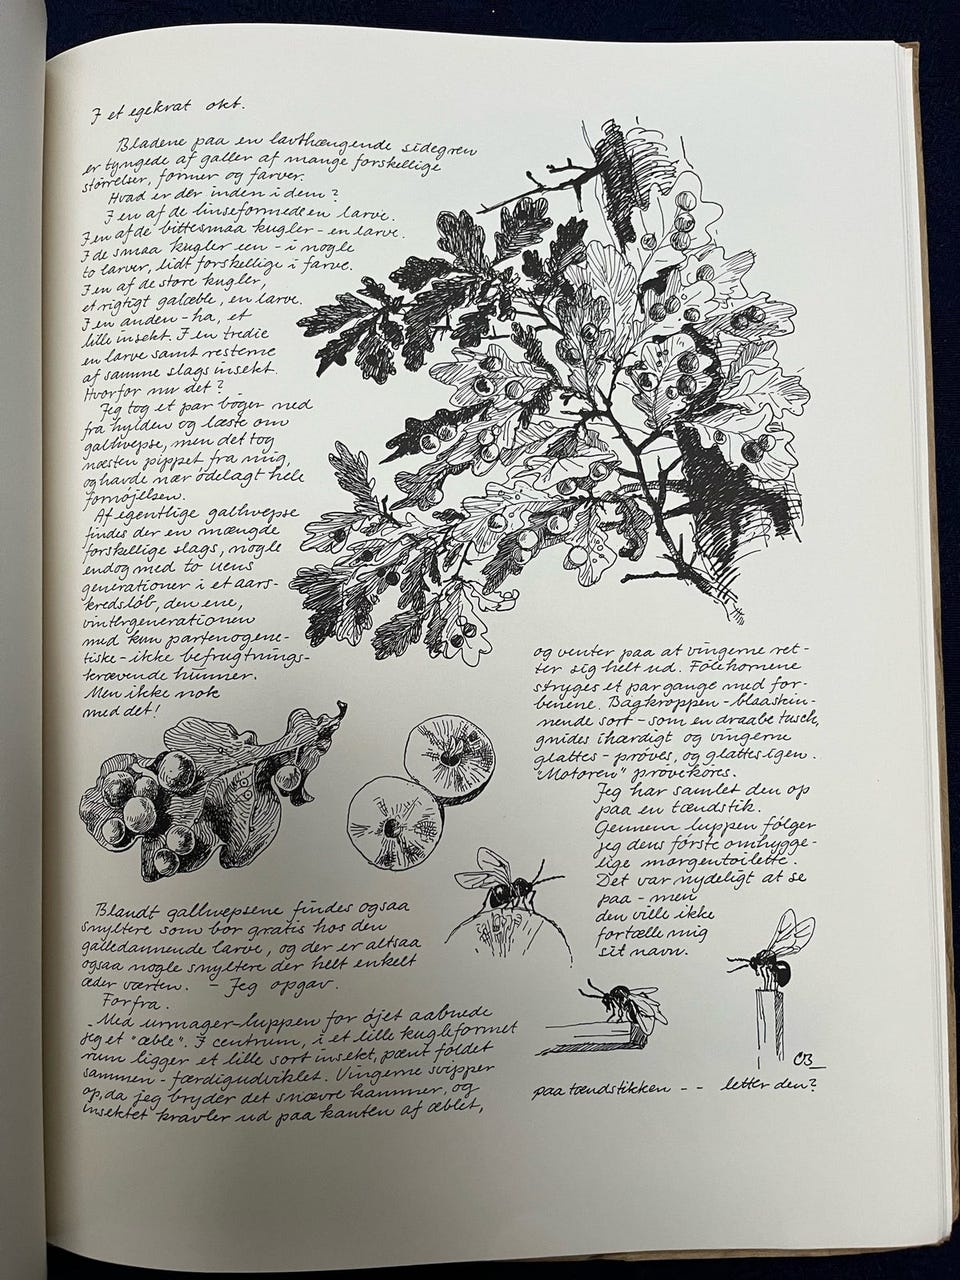 I et egekrat okt.
Bladene paa en lavthængende sidegren
er tyngede af galler af mange forskellige
størrelser, former og farver.
Hvad er der inden i dem?
I en af de linseformede en larve.
I en af de bittesmaa kugler - en larve.
I de smaa kugler een - i nogle
to larver, lidt forskellige i farve.
I en af de store kugler,
et rigtigt galæble, en larve.
I en anden - ha, et
lille insekt. I en tredie
en larve samt resterne
af samme slags insekt.
Hvorfor nu det?
Jeg tog et par bøger ned
fra hylden og læste om
galhvepse, men det tog
næsten pippet fra mig,
og havde nær ødelagt hele
fornøjelsen.
Af egentlige galhvepse
findes der en mængde
forskellige slags, nogle
endog med to uens
generationer i et aars-
kredsløb, den ene,
vintergenerationen
med kun partenogene-
tiske - ikke befrugtnings-
krævende hunner.
Men ikke nok
med det!
Blandt galhvepsene findes ogsaa
snyltere som bor gratis hos den
galledannende larve, og der er altsaa
ogsaa nogle snyltere der helt enkelt
æder værten. - Jeg opgav.
Forfra.
Med urmager-luppen for øjet aabnede
jeg et "æble". I centrum, i et lille kugleformet
rum ligger et lille sort insekt, pænt foldet
sammen - færdigudviklet. Vingerne svipper
op, da jeg bryder det snævre kammer, og
insektet kravler ud paa kanten af æblet,
og venter paa at vingerne ret-
ter sig helt ud. Følehornene
stryges et par gange med for-
benene. Bagkroppen - blaaskin-
nende sort - som en draabe tusch,
gnides ihærdigt og vingerne
glattes - prøves, og glattes igen.
"Motoren" prøvekøres.
Jeg har samlet den op
paa en tændstik.
Gennem luppen følger
jeg dens første omhygge-
lige morgentoilette.
Det var nydeligt at se
paa - men
den ville ikke
fortælle mig
sit navn.
CB
paa tændstikken -- letter den?